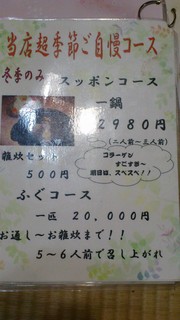 当店超季節ご自慢コース
冬季のみ スッポンコース
一鍋
2980円
(二人前~三人前)
雑炊セット
500円
コラーゲン
すごすぎ~
明日は、スベスベ!!
ふぐコース
一匹 20,000円
お通し~お雑炊まで!!
5~6人前で召し上がれ